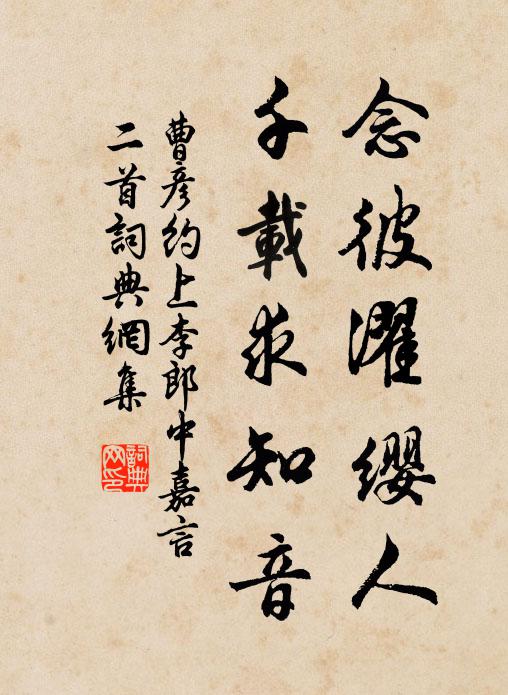 念彼濯纓人
千載求知音
曹彦約上李郎中嘉言
二首詞典網集
詞典
网印